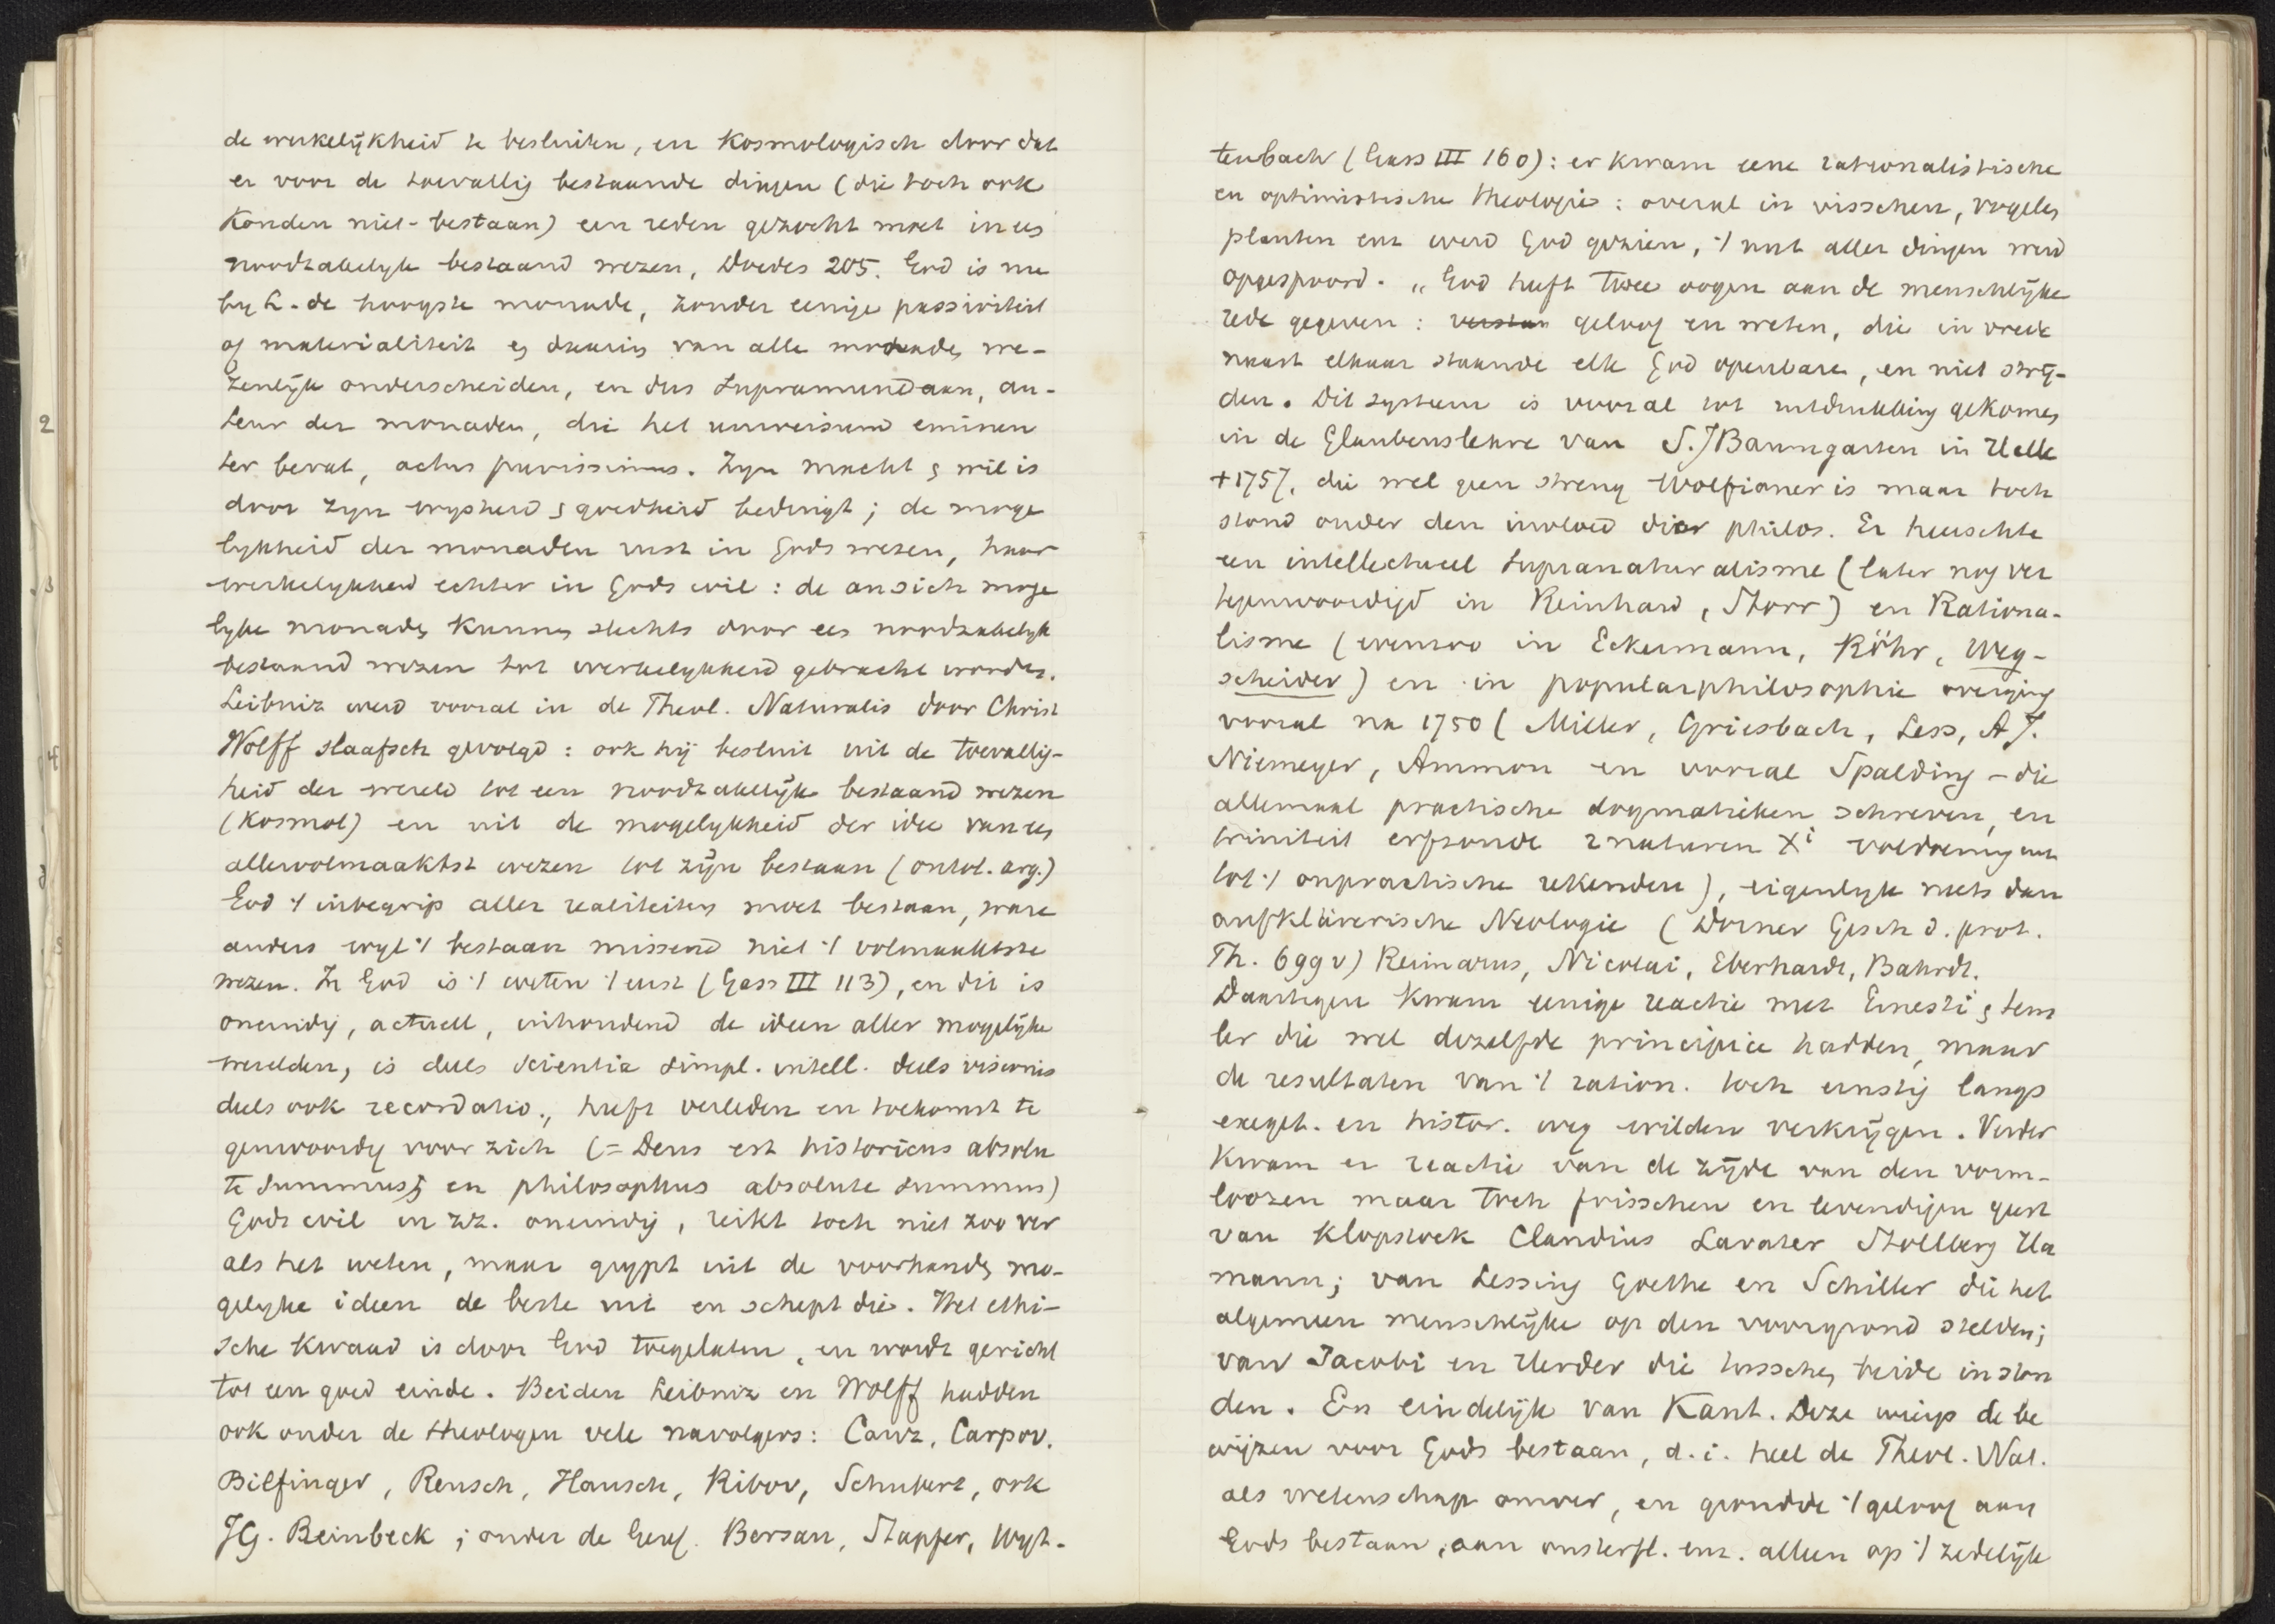 de werkelijkheid te besluiten, en Kosmologisch door dat
er voor de toevallig bestaande dingen (die toch ook
konden niet-bestaan) een reden gezocht moet in een
noodzakelijk bestaand wezen, Doedes 205. God is nu
by L. de hoogste monade, zonder eenige passiviteit
of materialiteit en daarin van alle monaden we-
zenlijk onderscheiden, en dus Supramundaan, au-
teur der monaden, die het universum eminen
ter bevat, actus purissimus. Zyn macht & wil is
door zyn wysheid & goedheid bedingt; de moge
lykheid der monaden rust in Gods wezen, haar
werkelykheid echter in Gods wil: de an sich moge
lyke monaden kunnen slechts door een noodzakelyk
bestaand wezen tot werkelykheid gebracht worden.
Leibniz werd vooral in de Theol. Naturalis door Christ
Wolff slaafsch gevolgd: ook hij besluit uit de toevallig-
heid der wereld tot een noodzakelijk bestaand wezen
(Kosmol) en uit de mogelykheid der idee van een
allervolmaaktst wezen tot zijn bestaan (ontol. arg.)
God 't inbegrip aller realiteiten moet bestaan, ware
anders wyl 't bestaan missend niet 't volmaaktste
wezen. In God is 't weten 't eerst (Gass III 113), en dit is
oneindig, actueel, inhoudend de ideen aller mogelijke
werelden, is deels scientia simpl. intell. deels visionis
deels ook recordatio., heeft verleden en toekomst te
genwoordig voor zich (= Deus est historicus absolu
te summus, en philosophus absolute summus)
Gods wil in zz. oneindig, reikt toch niet zoo ver
als het weten, maar grypt uit de voorhanden mo-
gelyke ideen de beste uit en schept die. Het ethi-
sche kwaad is door God toegelaten, en wordt gericht
tot een goed einde. Beiden Leibniz en Wolff hadden
ook onder de theologen vele navolgers: Canz, Carpov.
Bilfinger, Reusch, Hansch, Ribov, Schubert, ook
JG. Reinbeck; onder de Geref. Bersan, Stapfer, Wyt-
tenbach (Gass III 160): er kwam eene rationalistische
en optimistische theologie: overal in visschen, vogels
planten enz werd God gezien, 't nut aller dingen werd
opgespoord. "God heeft twee oogen aan de menschelijke
rede gegeven: geloof en weten, die in vrede
naast elkaar staande elk God openbaren, en niet strij-
den. Dit systeem is vooral tot ontwikkeling gekomen
in de Glaubenslehre van S.J Baumgarten in Halle
+1757, die wel geen streng Wolfianer is maar toch
stond onder den invloed dier philos. Er heerschte
een intellectueel supranaturalisme (later nog ver
tegenwoordigd in Reinhard, Storr) en Rationa-
lisme (evenzoo in Eckermann, Röhr, Weg-
scheider) en in popularphilosophie overging
vooral na 1750 (Miller, Griesbach, Less, A J.
Niemeyer, Ammon en vooral Spalding - die
allemaal practische dogmatieken schreven, en
triniteit erfzonde 2 naturen Xi voldoening enz
tot 't onpractische rekenden), eigenlyk niets dan
aufklärerische Neologie (Dorner Gesch d. prot.
Th. 699 v) Reimarus, Nicolai, Eberhardt, Bahrdt.
Daartegen kwam eenige reactie met Ernesti & Sem
ler die wel dezelfde principia hadden, maar
de resultaten van 't ration. toch ernstig langs
exeget. en histor. weg wilden verkrijgen. Verder
kwam er reactie van de zijde van den vorm-
loozen maar toch frisschen en levendigen geest
van Klopstock Claudius Lavater Stollberg Ha
mann; van Lessing Goethe en Schiller die het
algemeen menschelijke op den voorgrond stelden;
van Jacobi en Herder die tusschen beide in ston
den. En eindelijk van Kant. Deze wierp de be
wijzen voor Gods bestaan, d.i. heel de Theol. Nat.
als wetenschap omver, en grondde 't geloof aan
Gods bestaan, aan onsterfl. enz. alleen op 't zedelijk